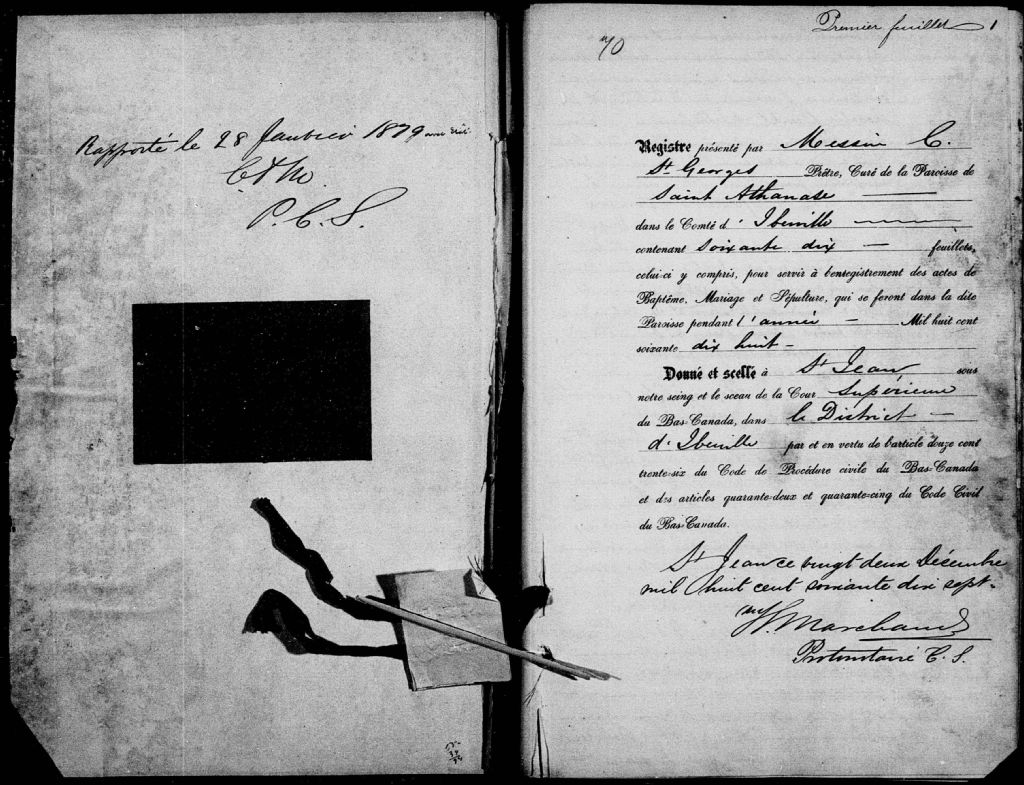 Rapporté le 28 Janvier 1879
P. C. S.
Premier feuillet 1
70
Registre présenté par Messire C.
St Georges Prêtre, Curé de la Paroisse de
Saint Athanase
dans le Comté d' Iberville
contenant soixante dix — feuillets,
celui-ci y compris, pour servir à l'enregistrement des actes de
Baptême, Mariage et Sépulture, qui se feront dans la dite
Paroisse pendant l'année — Mil huit cent
soixante dix huit —
Donné et scellé à St Jean, sous
notre seing et le sceau de la Cour Supérieure
du Bas-Canada, dans le District —
d'Iberville par et en vertu de l'article douze cent
trente-six du Code de Procédure civile du Bas-Canada
et des articles quarante-deux et quarante-cinq du Code Civil
du Bas-Canada.
St Jean ce vingt deux Décembre
mil huit cent soixante dix sept.
Marchand
Protonotaire C. S.